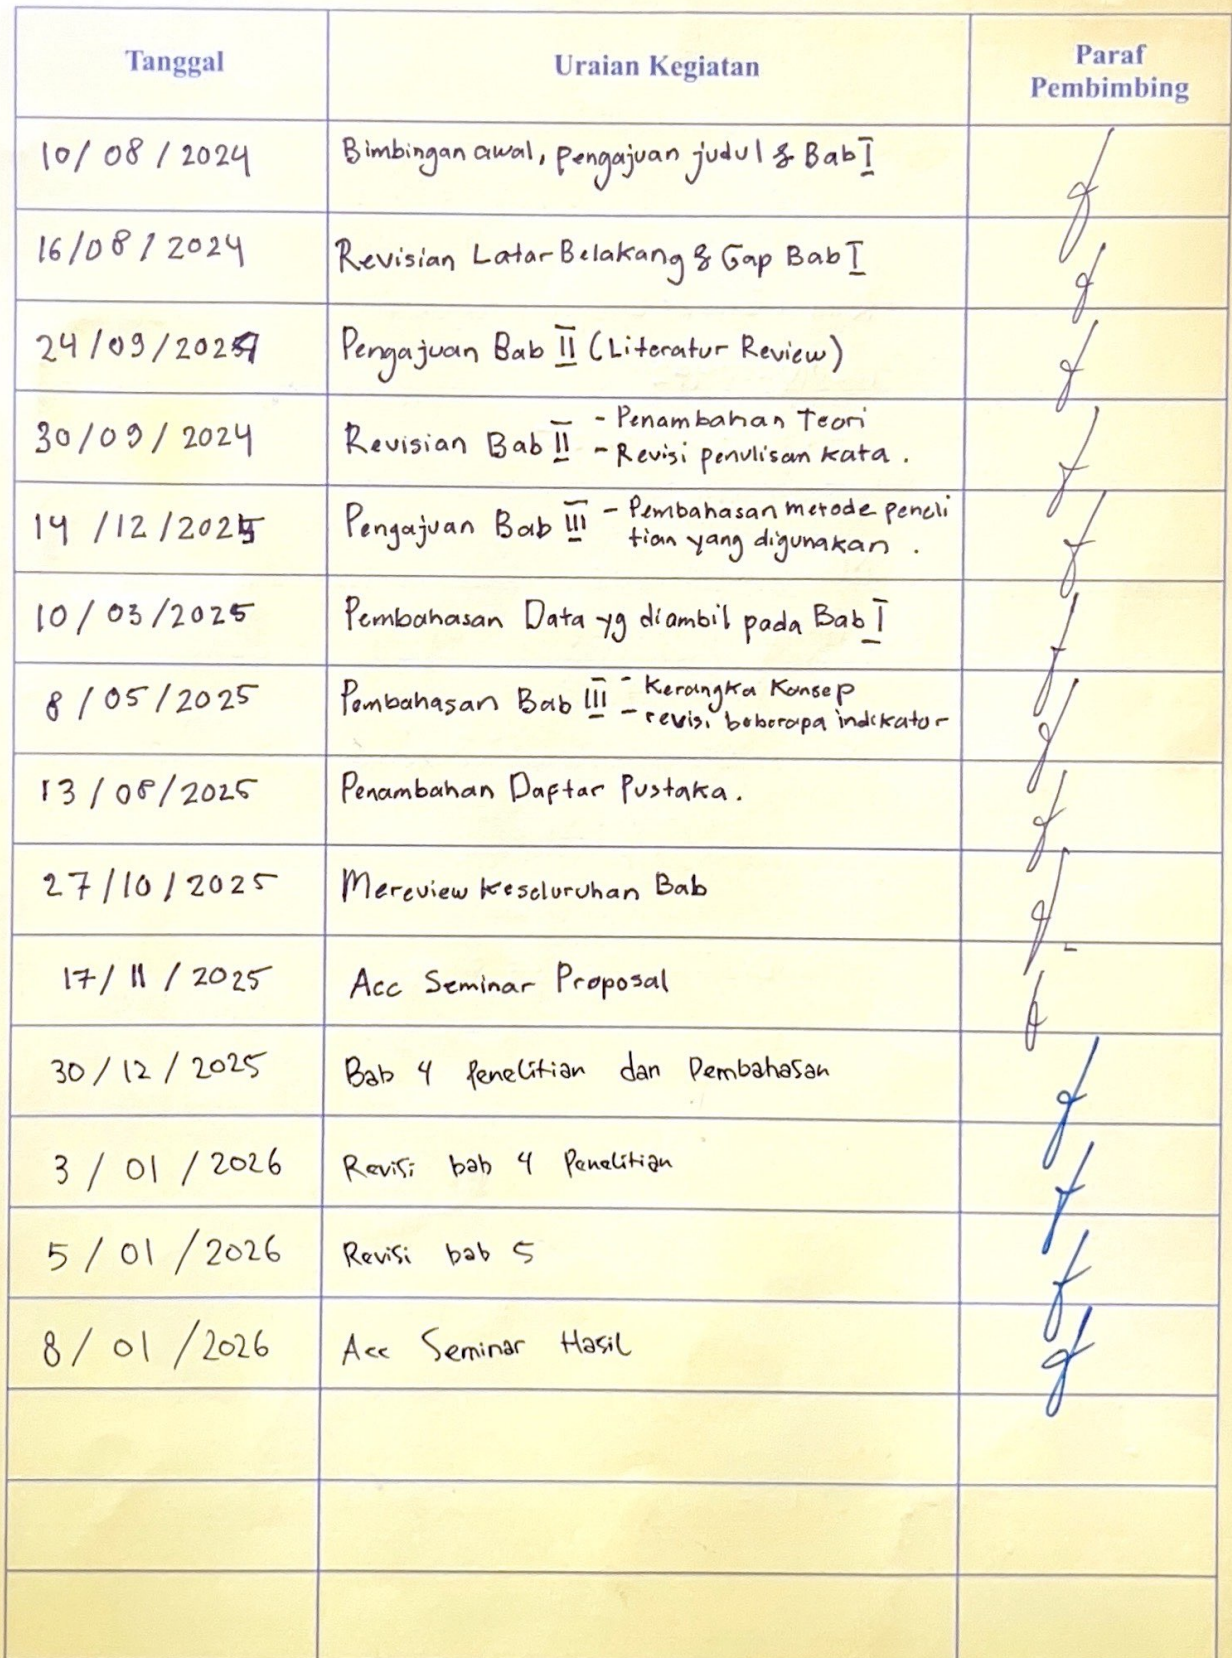 Tanggal
Uraian Kegiatan
Paraf
Pembimbing
10/08/2024
Bimbingan awal, pengajuan judul & Bab I
16/08/2024
Revisian Latar Belakang & Gap Bab I
24/09/2024
Pengajuan Bab II (Literatur Review)
30/09/2024
Revisian Bab II - Penambahan Teori
- Revisi penulisan kata.
14/12/2024
Pengajuan Bab III - Pembahasan metode peneli
tian yang digunakan.
10/03/2025
Pembahasan Data yg diambil pada Bab I
8/05/2025
Pembahasan Bab III - Kerangka Konsep
- revisi beberapa indikator
13/08/2025
Penambahan Daftar Pustaka.
27/10/2025
Mereview keseluruhan Bab
17/11/2025
Acc Seminar Proposal
30/12/2025
Bab 4 Penelitian dan Pembahasan
3/01/2026
Revisi bab 4 Penelitian
5/01/2026
Revisi bab 5
8/01/2026
Acc Seminar Hasil